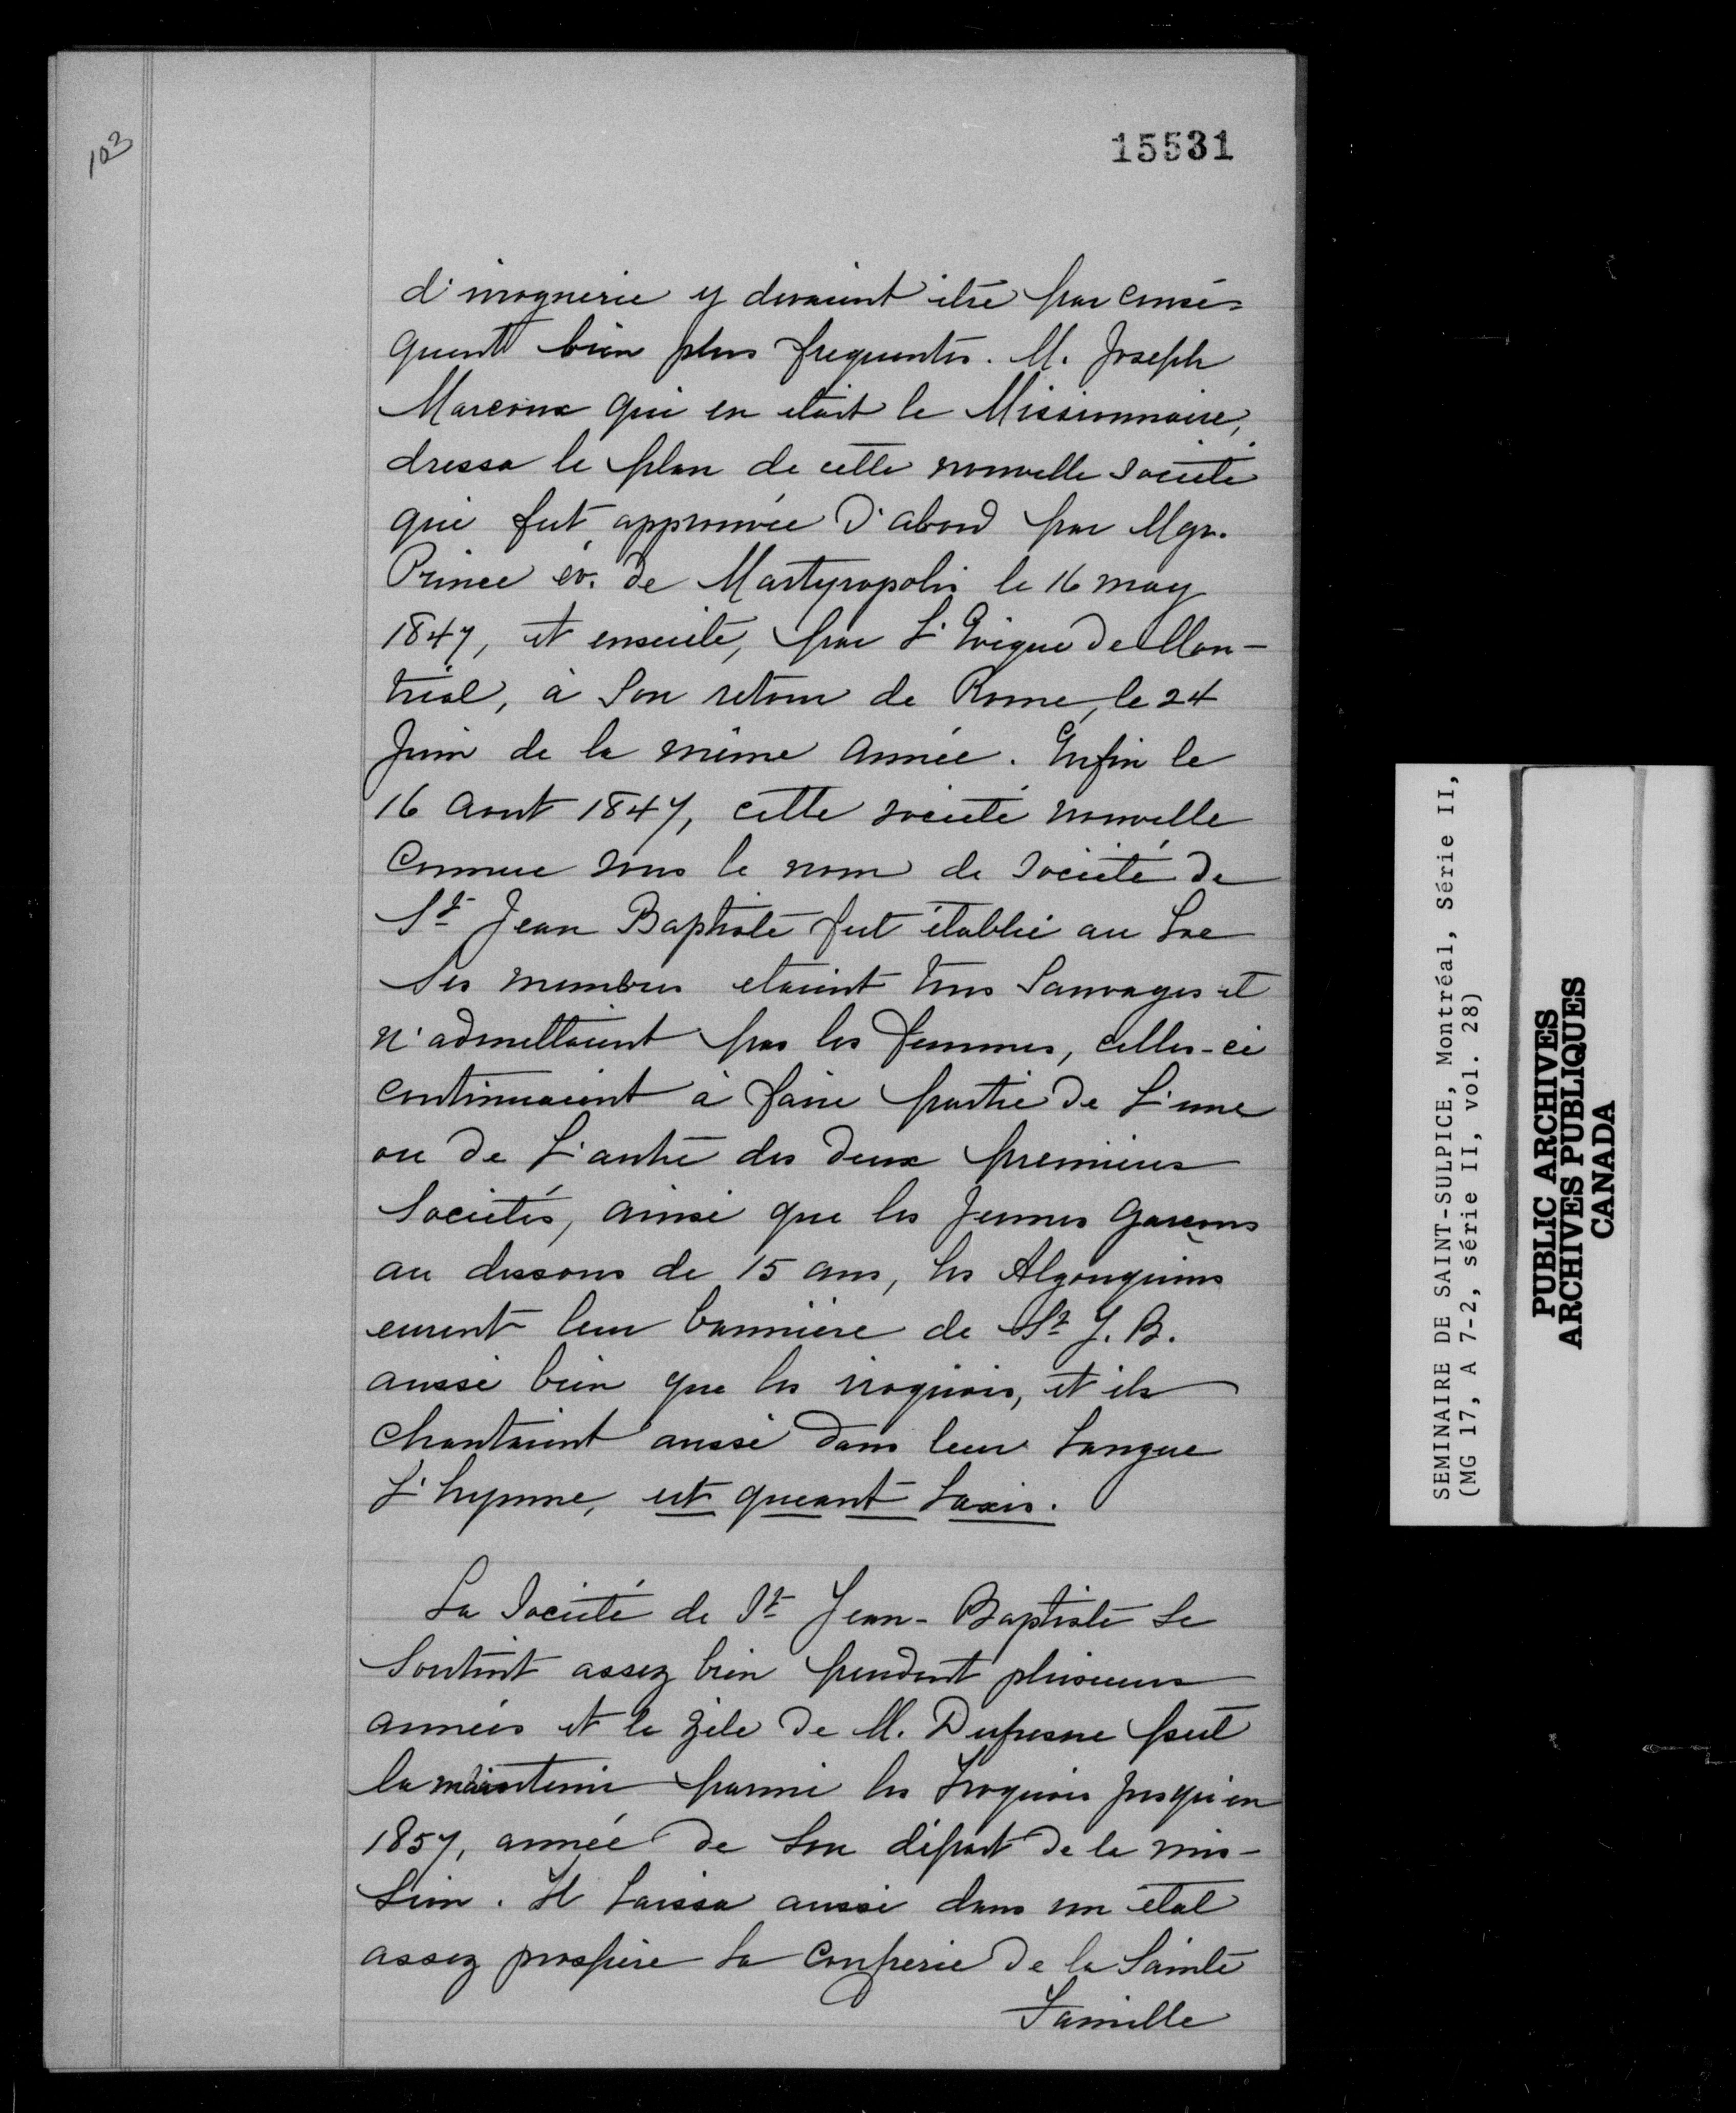 103
15531
d'ivrognerie y devaient être par consé=
quent bien plus frequentes. M. Joseph
Marcoux qui en etait le Missionnaire,
dressa le plan de cette nouvelle societé
qui fut approuvée d'abord par Mgr.
Prince év. de Martyropolis le 16 may
1847, et ensuite, par L'Evêque de Mon-
tréal, à Son retour de Rome, le 24
Juin de la même année. Enfin le
16 Aout 1847, cette societé nouvelle
Connue sous le nom de Société de
St Jean Baptiste fut établie au Lac
Ses membres etaient tous Sauvages et
n'admettaient pas les femmes, celles-ci
continuaient à faire partie de L'une
ou de L'autre des deux premières
Societés, ainsi que les Jeunes garçons
au dessous de 15 ans, les Algonquins
eurent leur bannière de St J. B.
aussi bien que les iroquois, et ils
chantaient aussi dans leur Langue
L'hymne, ut queant Laxis.
La Société de St Jean-Baptiste Se
Soutint assez bien pendant plusieurs
années et le zèle de M. Dufresne put
la maintenir parmi les Iroquois jusqu'en
1857, année de Son départ de la mis-
Sion. Il Laissa aussi dans un état
assez prospère La Confrerie de la Sainte
Famille
SEMINAIRE DE SAINT-SULPICE, Montréal, Série II,
(MG 17, A 7-2, série II, vol. 28)
PUBLIC ARCHIVES
ARCHIVES PUBLIQUES
CANADA